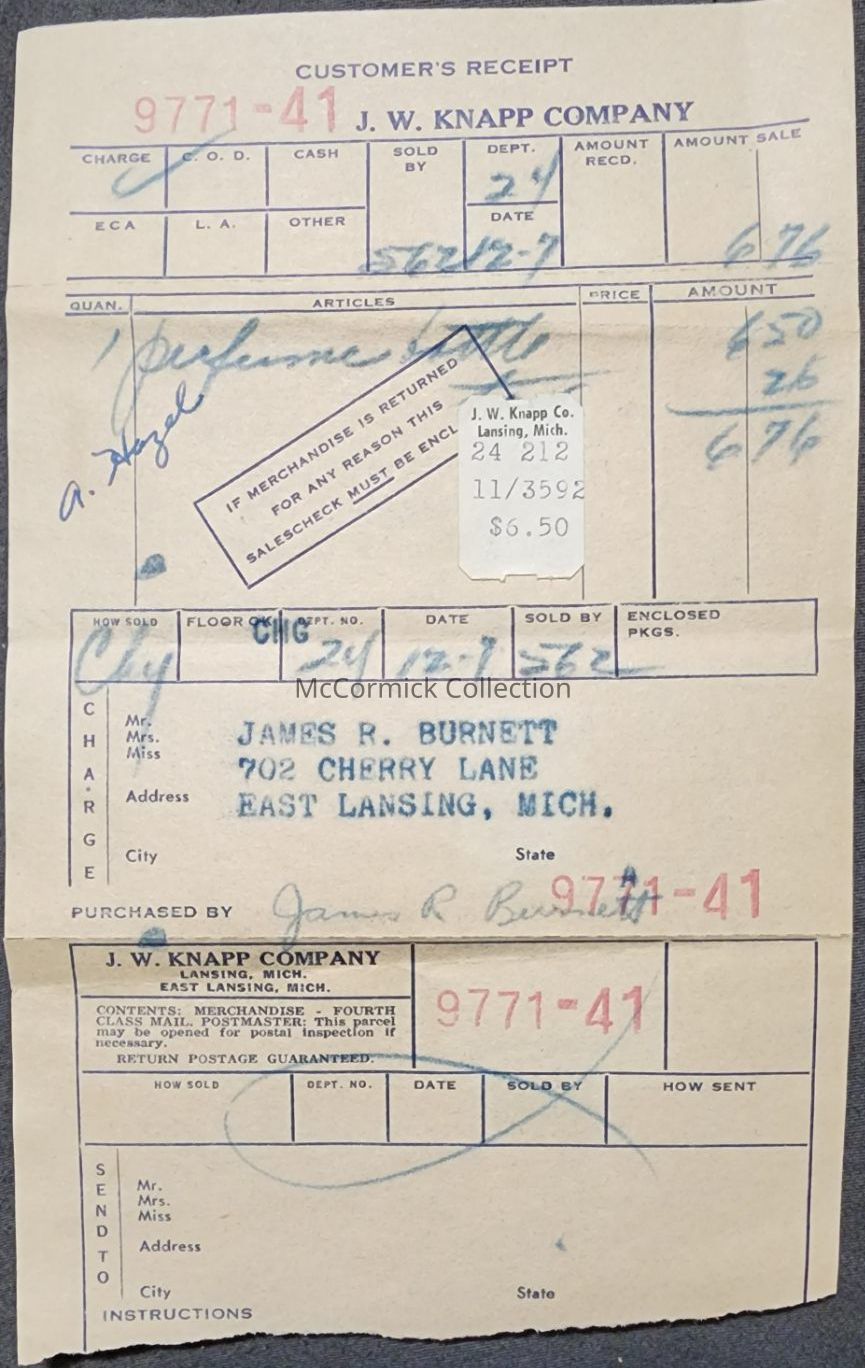 CUSTOMER'S RECEIPT
9771-41 J. W. KNAPP COMPANY
CHARGE C. O. D. CASH SOLD BY DEPT. AMOUNT RECD. AMOUNT SALE
24
ECA L. A. OTHER DATE
562 12-7 6 76
QUAN. ARTICLES PRICE AMOUNT
1 perfume bottle 6 50
26
6 76
a. Hazel
IF MERCHANDISE IS RETURNED
FOR ANY REASON THIS
SALESCHECK MUST BE ENCL
J. W. Knapp Co.
Lansing, Mich.
24 212
11/3592
$6.50
HOW SOLD FLOOR OK DEPT. NO. DATE SOLD BY ENCLOSED PKGS.
CHG
Chg 24 12-7 562
McCormick Collection
CHARGE
Mr.
Mrs.
Miss
JAMES R. BURNETT
702 CHERRY LANE
Address
EAST LANSING, MICH.
City State
9771-41
PURCHASED BY James R Burnett
J. W. KNAPP COMPANY
LANSING, MICH.
EAST LANSING, MICH.
9771-41
CONTENTS: MERCHANDISE - FOURTH
CLASS MAIL. POSTMASTER: This parcel
may be opened for postal inspection if
necessary.
RETURN POSTAGE GUARANTEED.
HOW SOLD DEPT. NO. DATE SOLD BY HOW SENT
SEND TO
Mr.
Mrs.
Miss
Address
City State
INSTRUCTIONS